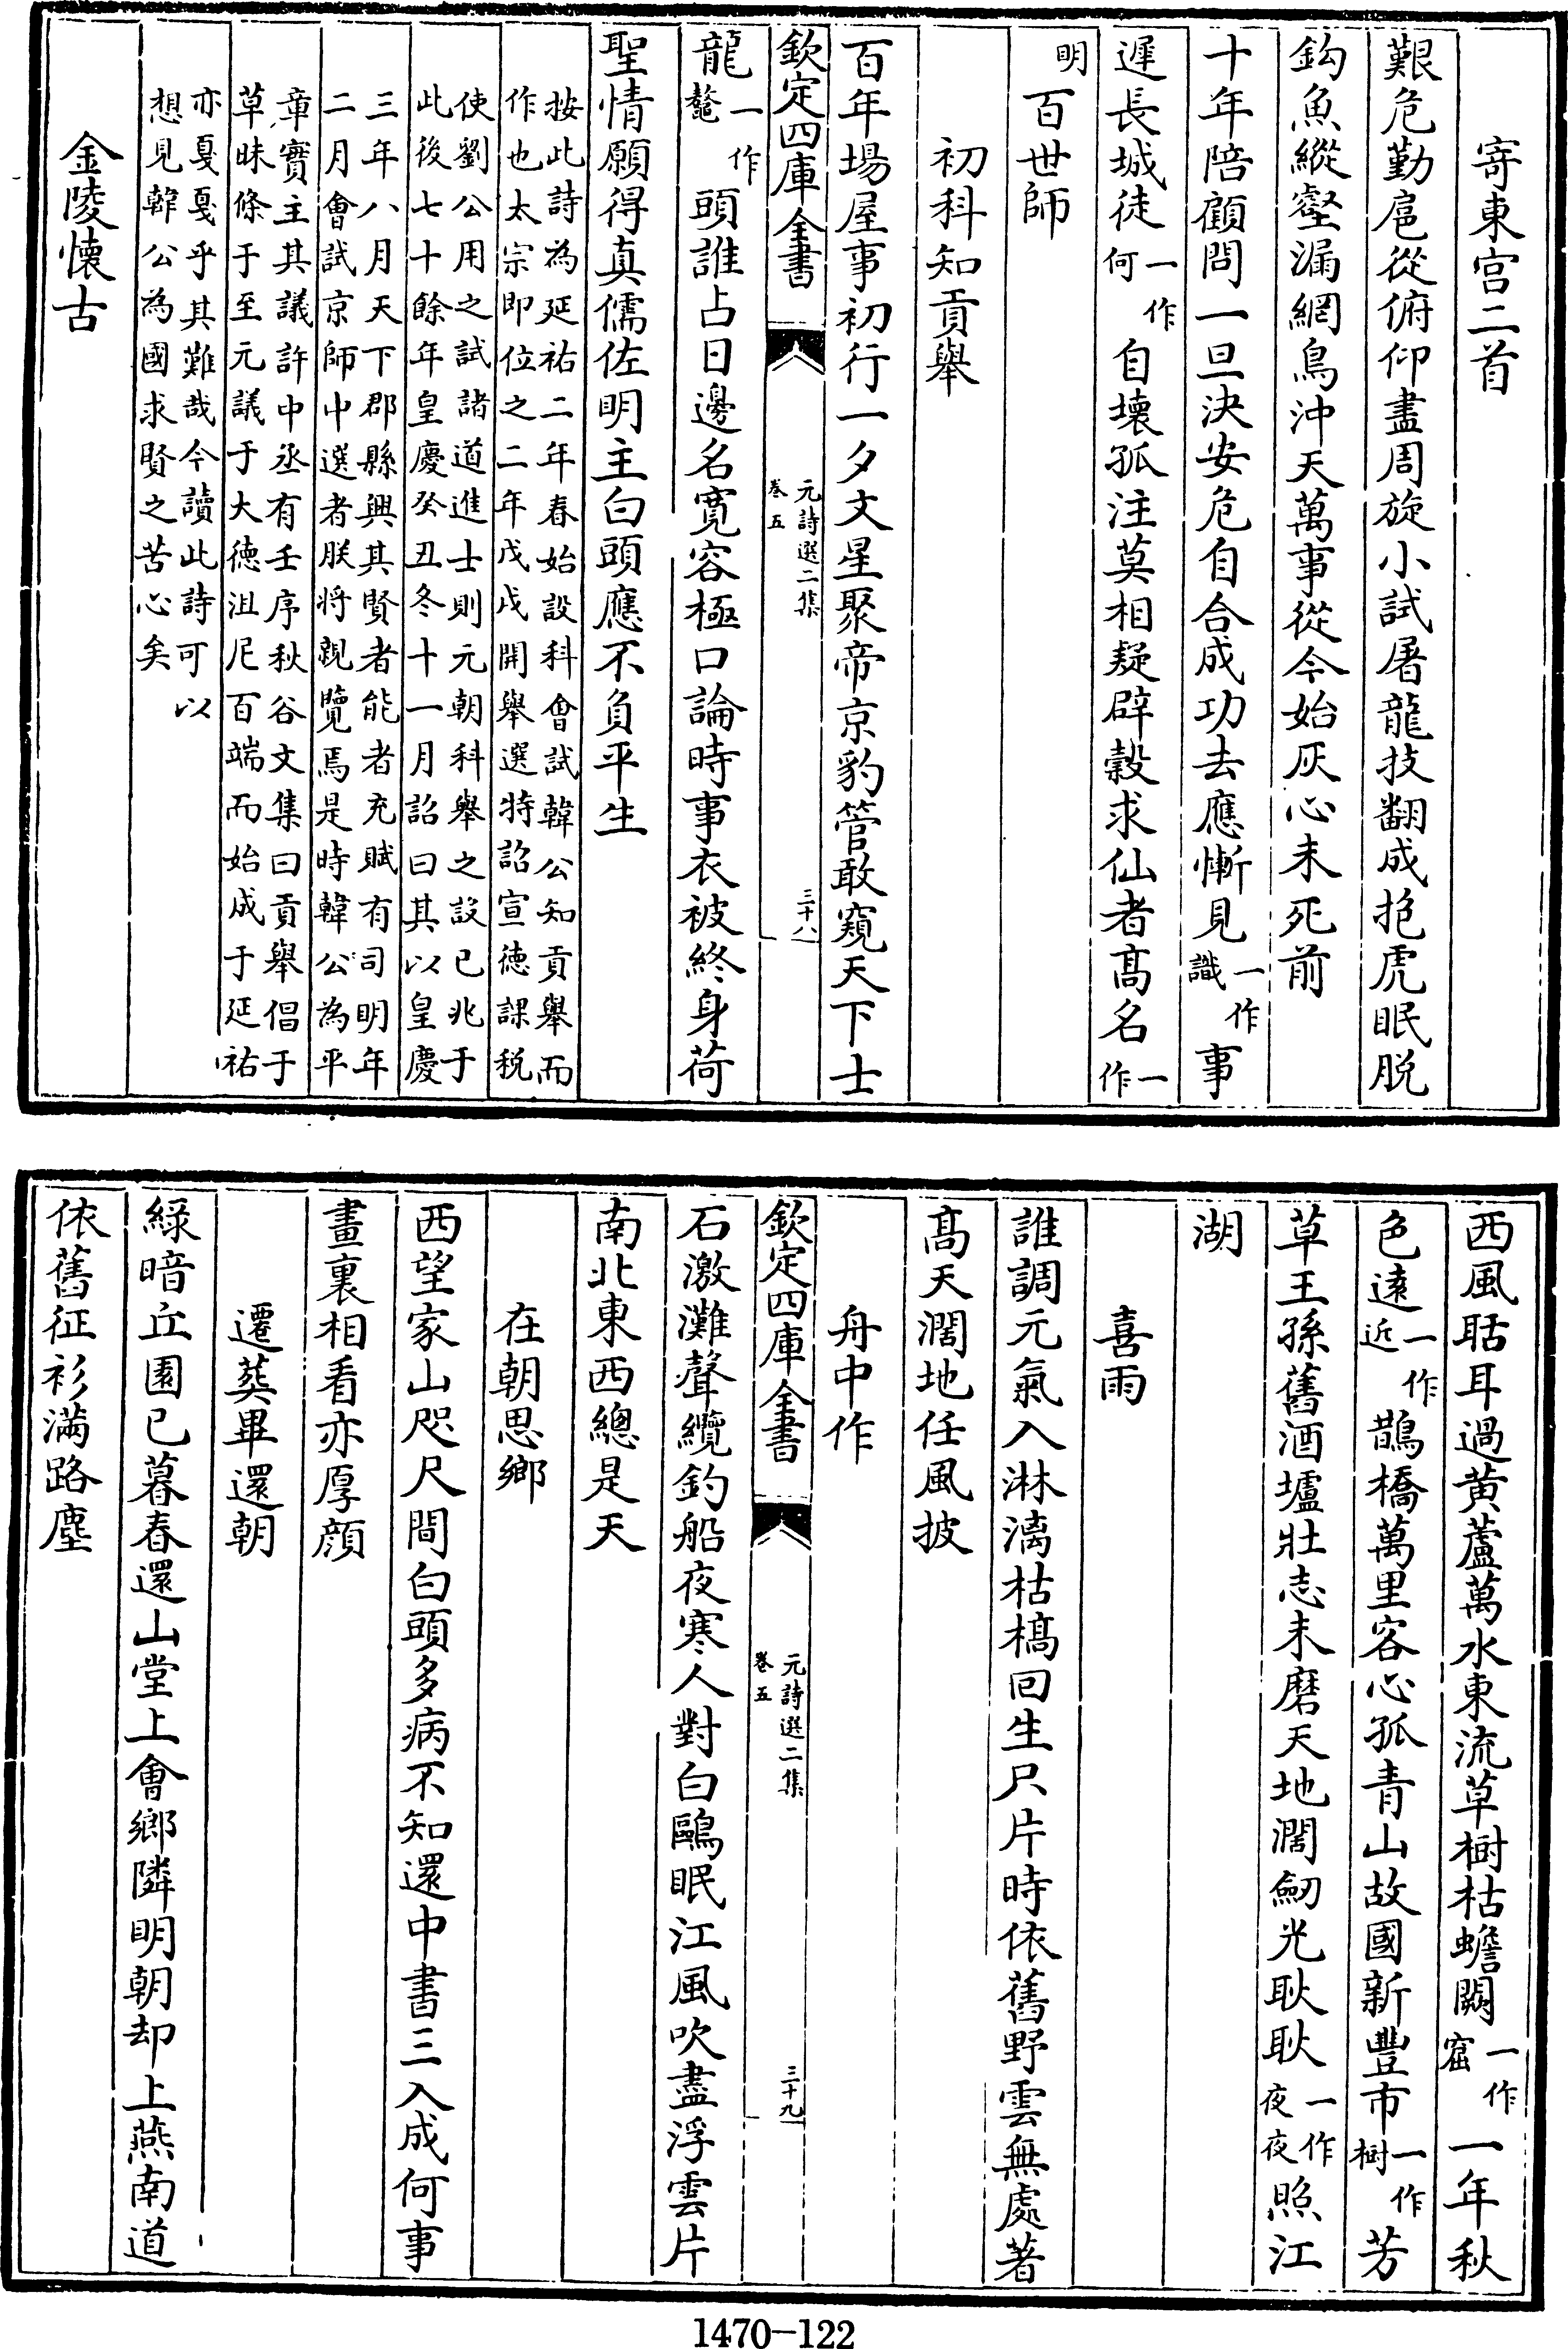 寄東宫二首
艱危勤扈從俯仰盡周旋小試屠龍技翻成抱虎眠脱
鈎魚縱壑漏網鳥沖天萬事從今始灰心未死前
十年陪顧問一旦決安危自合成功去應慚見一作識事
遲長城徒一作何自壊孤注莫相疑辟穀求仙者髙名一作
明百世師
初科知貢舉
百年場屋事初行一夕文星聚帝京豹管敢窺天下士
欽定四庫全書
元詩選二集
卷五
三十八
龍一作鼇頭誰占日邊名寛容極口論時事衣被終身荷
聖情願得真儒佐明主白頭應不負平生
按此詩為延祐二年春始設科會試韓公知貢舉而
作也太宗即位之二年戊戌開舉選特詔宣徳課税
使劉公用之試諸道進士則元朝科舉之設已兆于
此後七十餘年皇慶癸丑冬十一月詔曰其以皇慶
三年八月天下郡縣興其賢者能者充賦有司明年
二月會試京師中選者朕将親覽焉是時韓公為平
章實主其議許中丞有壬序秋谷文集曰貢舉倡于
草昧條于至元議于大徳沮尼百端而始成于延祐
亦戛戛乎其難哉今讀此詩可以
想見韓公為國求賢之苦心矣
金陵懐古
西風聒耳過黄蘆萬水東流草樹枯蟾闕一作窟一年秋
色逺一作近鵲橋萬里客心孤青山故國新豐市一作樹芳
草王孫舊酒壚壯志未磨天地濶劒光耿耿一作夜夜照江
湖
喜雨
誰調元氣入淋漓枯槁回生只片時依舊野雲無處著
髙天濶地任風披
舟中作
欽定四庫全書
元詩選二集
卷五
三十九
石激灘聲纜釣船夜寒人對白鷗眠江風吹盡浮雲片
南北東西總是天
在朝思鄉
西望家山咫尺間白頭多病不知還中書三入成何事
畫裏相看亦厚顔
遷葬畢還朝
緑暗丘園已暮春還山堂上會鄉隣明朝却上燕南道
依舊征衫滿路塵
1470-122